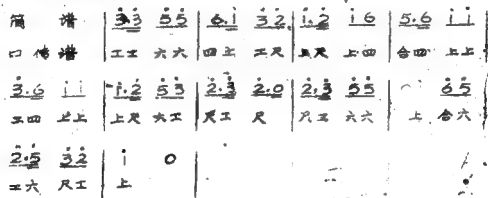 简 谱 | 3̇ 3̇ 5̇ 5̇ | 6. i 3̇ 2̇ | i. 2̇ i 6 | 5. 6 i i |
口 传 谱 工工 六六 四上 工尺 上尺 上四 合四 上上
3̇. 6 i i | i. 2̇ 5̇ 3̇ | 2̇. 3̇ 2̇. 0 | 2̇. 3̇ 5̇ 5̇ | 6̇ 5̇ |
工四 上上 上尺 六工 尺工 尺 尺工 六六 上 合六
2̇. 5̇ 3̇ 2̇ | i 0 |
工六 尺工 上